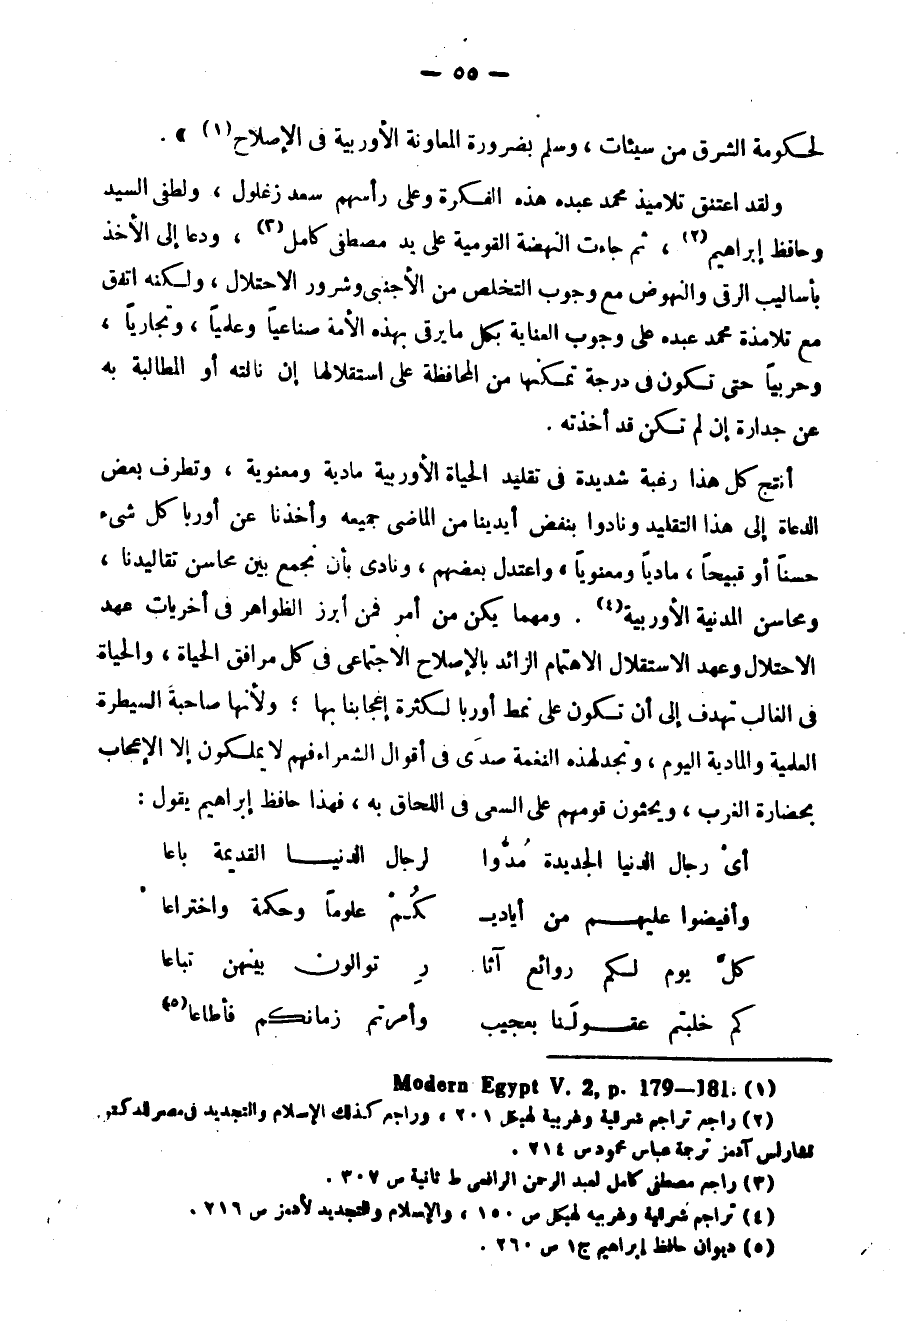 — ٥٥ —
لحكومة الشرق من سيئات ، وسلم بضرورة المعاونة الأوربية فى الإصلاح(١) » .
ولقد اعتنق تلاميذ محمد عبده هذه الفكرة وعلى رأسهم سعد زغلول ، ولطفى السيد
وحافظ إبراهيم(٢) ، ثم جاءت النهضة القومية على يد مصطفى كامل(٣) ، ودعا إلى الأخذ
بأساليب الرقى والنهوض مع وجوب التخلص من الأجنبى وشرور الاحتلال ، ولكنه اتفق
مع تلامذة محمد عبده على وجوب العناية بكل مايرقى بهذه الأمة صناعياً وعلمياً ، وتجارياً ،
وحربياً حتى تكون فى درجة تمكنها من المحافظة على استقلالها إن نالته أو المطالبة به
عن جدارة إن لم تكن قد أخذته .
أنتج كل هذا رغبة شديدة فى تقليد الحياة الأوربية مادية ومعنوية ، وتطرف بعض
الدعاة إلى هذا التقليد ونادوا بنفض أيدينا من الماضى جميعه وأخذنا عن أوربا كل شىء
حسناً أو قبيحاً ، مادياً ومعنوياً ، واعتدل بعضهم ، ونادى بأن نجمع بين محاسن تقاليدنا ،
ومحاسن المدنية الأوربية(٤) . ومهما يكن من أمر فمن أبرز الظواهر فى أخريات عهد
الاحتلال وعهد الاستقلال الاهتمام الزائد بالإصلاح الاجتماعى فى كل مرافق الحياة ، والحياة
فى الغالب تهدف إلى أن تكون على نمط أوربا لكثرة إعجابنا بها ؛ ولأنها صاحبة السيطرة
العلمية والمادية اليوم ، وتجد لهذه النغمة صدًى فى أقوال الشعراء فهم لا يملكون إلا الإعجاب
بحضارة الغرب ، ويحثون قومهم على السعى فى اللحاق به ، فهذا حافظ إبراهيم يقول :
أىْ رجال الدنيا الجديدة مُدُّوا لرجال الدنيـــا القديمة باعا
وأفيضوا عليهـــم من أياديـ ـكُـمْ علوماً وحكمة واختراعا
كلَّ يوم لكم روائع آثا رِ توالون بينهن تباعا
كم خلبتم عقـــولَنا بعجيب وأمرتم زمانكم فأطاعا(٥)
(١) Modern Egypt V. 2, p. 179—181.
(٢) راجع تراجم شرقية وغربية لهيكل ٢٠١ ، وراجع كذلك الإسلام والتجديد فى مصر للدكتور
تشارلس آدمز ترجمة عباس محمود ص ٢١٤ .
(٣) راجع مصطفى كامل لعبد الرحمن الرافعى ط ثانية ص ٣٠٧ .
(٤) تراجم شرقية وغربيه لهيكل ص ١٥٠ ، والإسلام والتجديد لأدمز ص ٢١٦ .
(٥) ديوان حافظ إبراهيم ج١ ص ٢٦٠ .